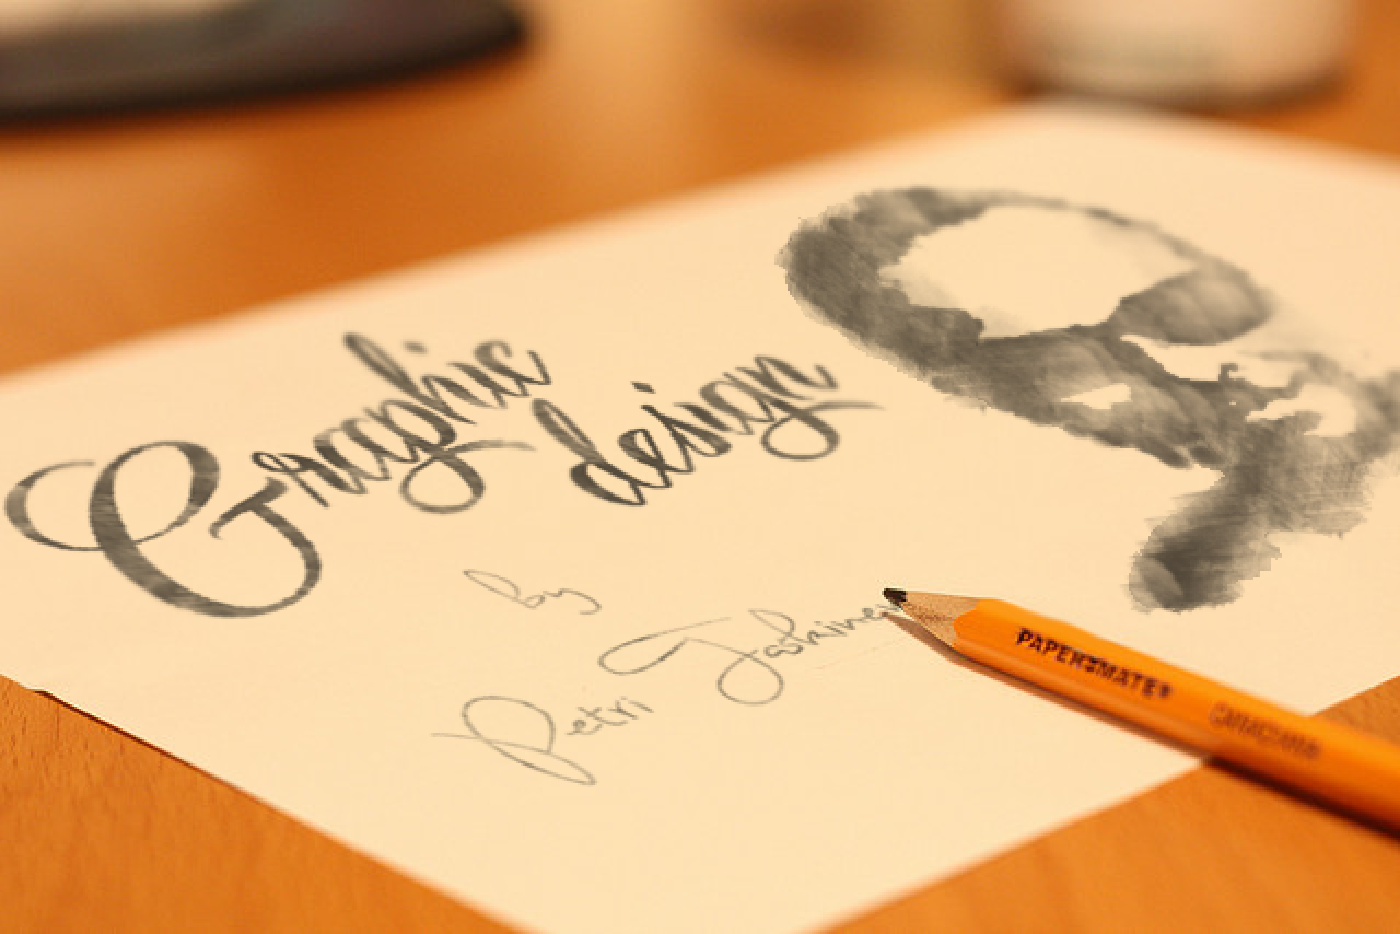 Graphic
design
by
Petri
PAPER:MATE®